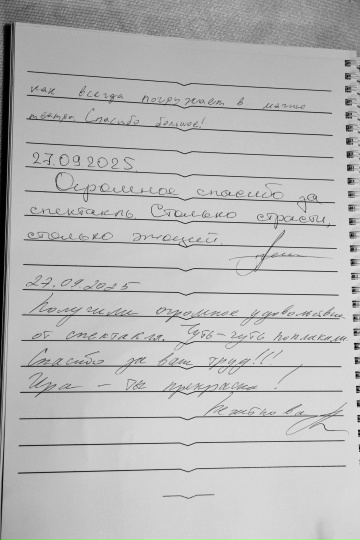 как всегда погружает в магию
театра Спасибо большое!
27.09.2025.
Огромное спасибо за
спектакль. Столько страсти,
столько эмоций.
27.09.2025
Получили огромное удовольствие
от спектакля. Чуть-чуть поплакали
Спасибо за ваш труд!!!
Ира - ты прекрасна!